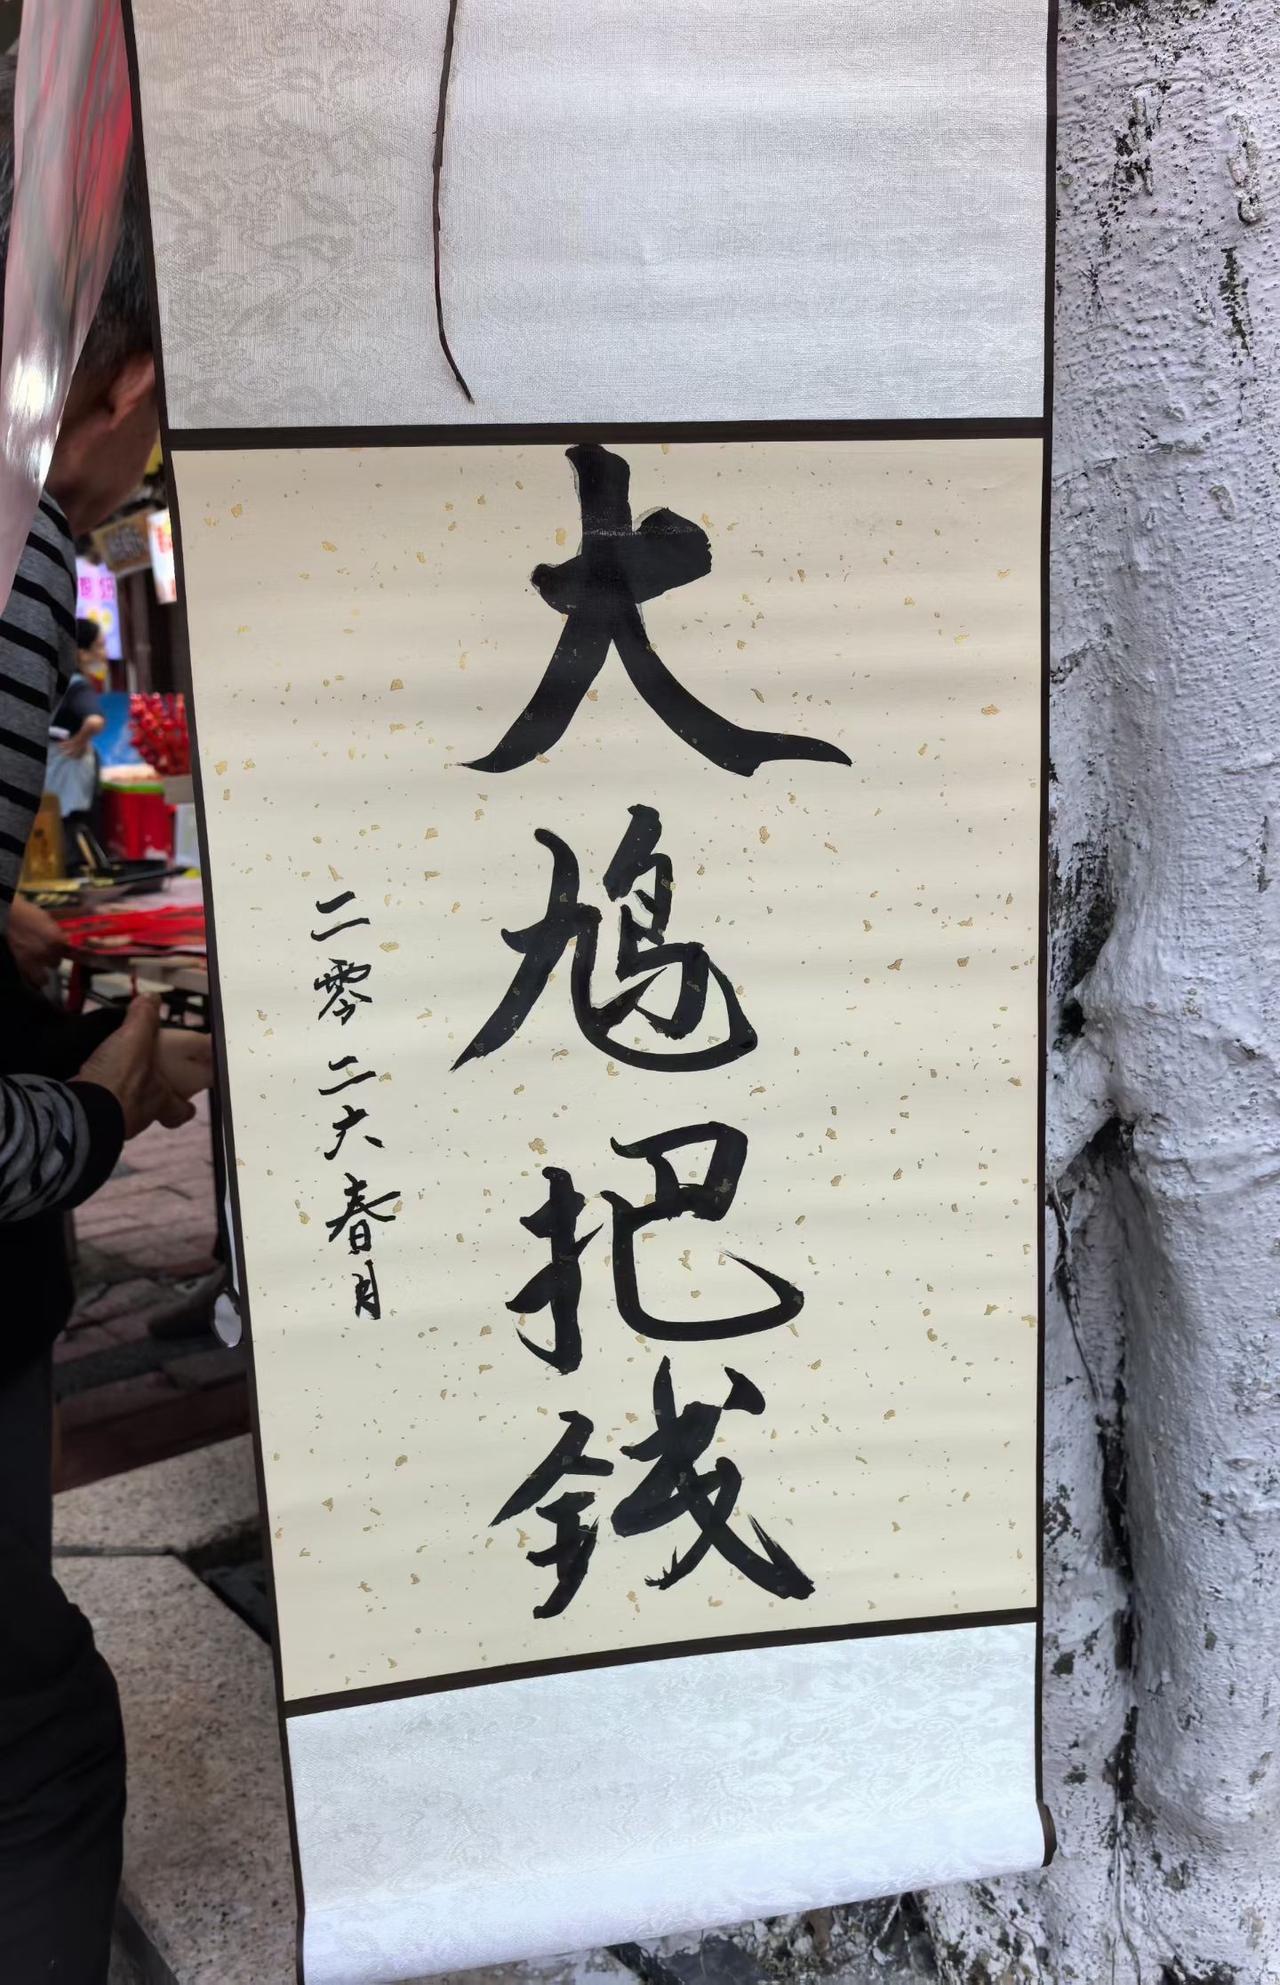 大鸠把銭
二零二六春月